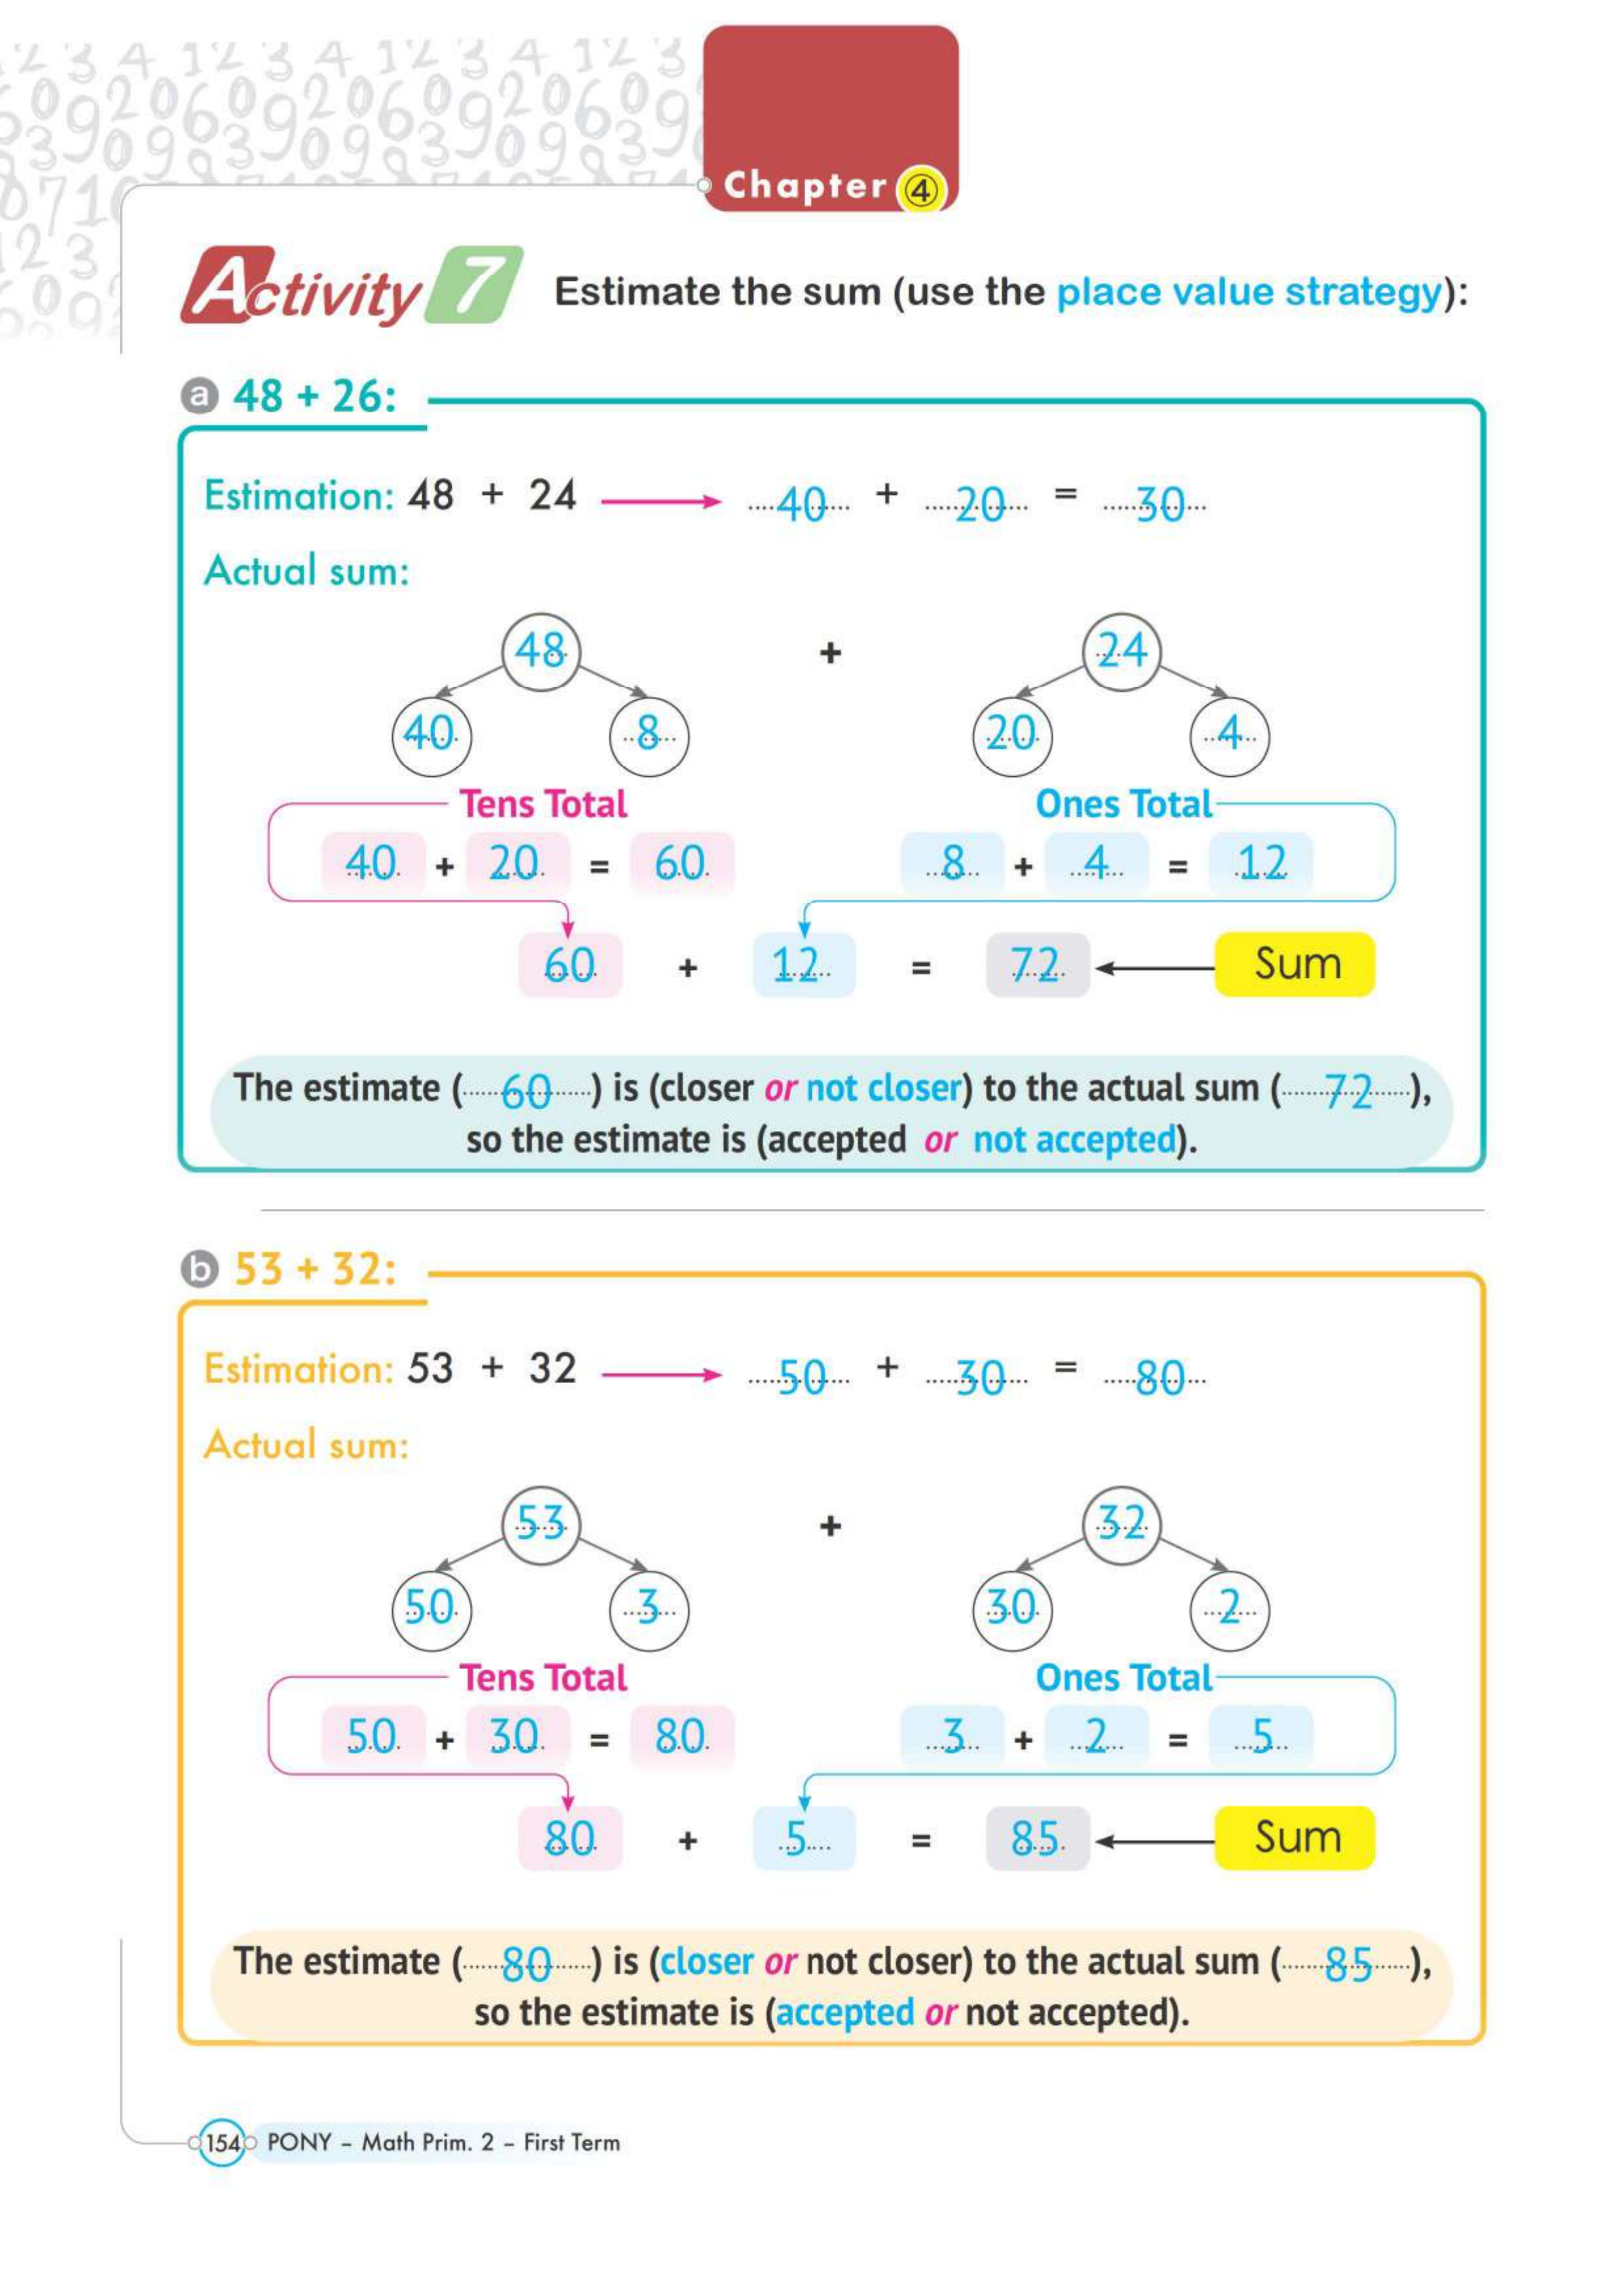 Chapter 4
Activity 7 Estimate the sum (use the place value strategy):
a 48 + 26:
Estimation: 48 + 24 40 + 20 = 30
Actual sum:
48 + 24
40 8 20 4
Tens Total Ones Total
40 + 20 = 60 8 + 4 = 12
60 + 12 = 72 Sum
The estimate (60) is (closer or not closer) to the actual sum (72),
so the estimate is (accepted or not accepted).
b 53 + 32:
Estimation: 53 + 32 50 + 30 = 80
Actual sum:
53 + 32
50 3 30 2
Tens Total Ones Total
50 + 30 = 80 3 + 2 = 5
80 + 5 = 85 Sum
The estimate (80) is (closer or not closer) to the actual sum (85),
so the estimate is (accepted or not accepted).
154 PONY - Math Prim. 2 - First Term